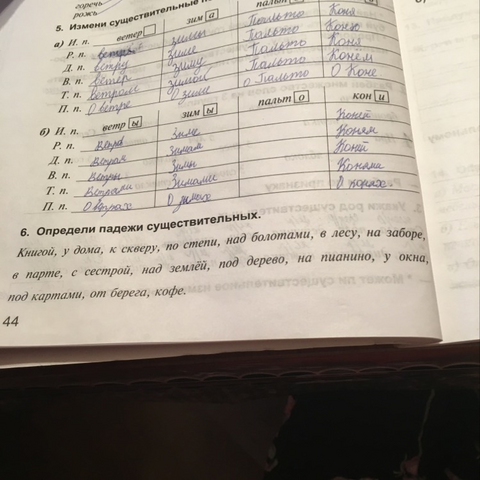 горечь
рожь
5. Измени существительные
а) И. п. ветер зим а пальт кон
Р. п. ветров зимы Пальто Коня
Д. п. ветру зиме Пальто Коню
В. п. ветер зиму Пальто Коня
Т. п. ветром зимой Пальто Конем
П. п. О ветре О зиме О Пальто О Коне
б) И. п. ветр ы зим ы пальт о кон и
Р. п. Зиме Коней
Д. п. Зимам Коням
В. п. Ветры Зимы Коней
Т. п. Ветрами Зимами Конями
П. п. О ветрах О зимах О конях
6. Определи падежи существительных.
Книгой, у дома, к скверу, по степи, над болотами, в лесу, на заборе,
в парте, с сестрой, над землёй, под дерево, на пианино, у окна,
под картами, от берега, кофе.
44